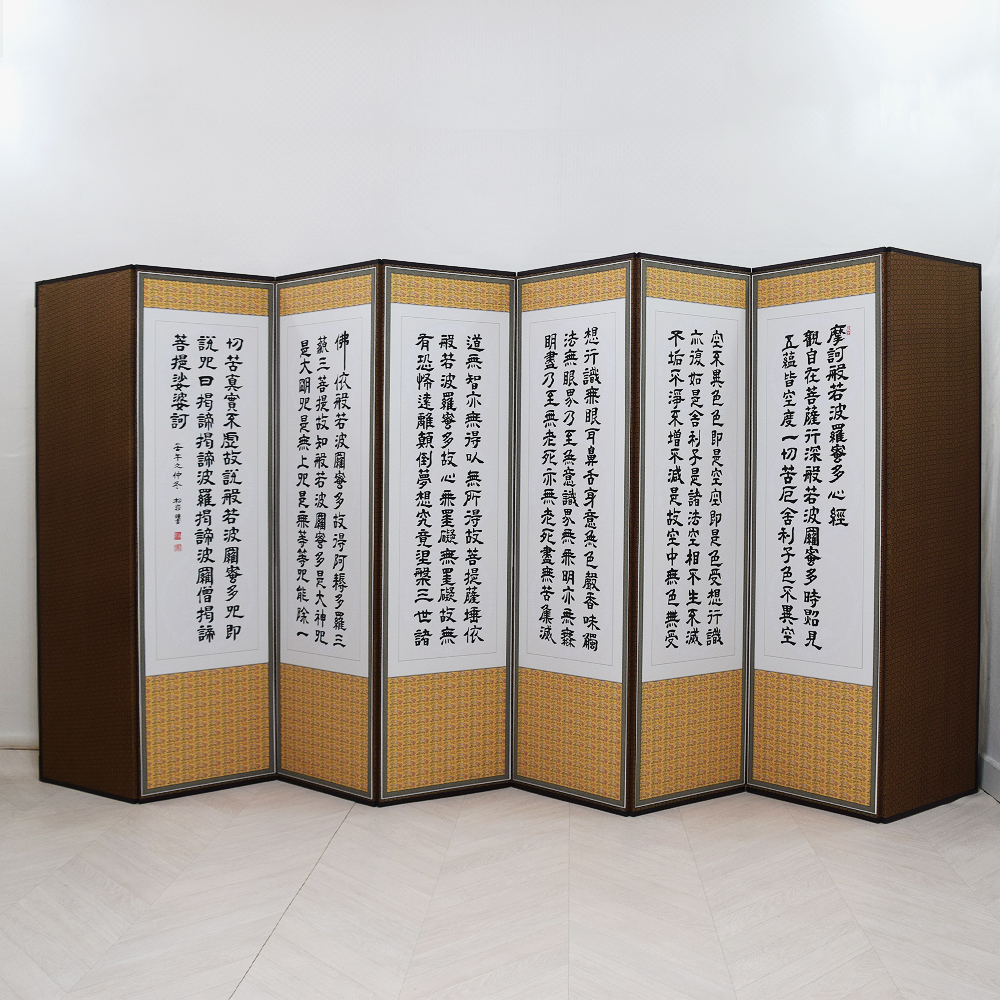 摩訶般若波羅蜜多心經
觀自在菩薩行深般若波羅蜜多時照見
五蘊皆空度一切苦厄舍利子色不異空
空不異色色即是空空即是色受想行識
亦復如是舍利子是諸法空相不生不滅
不垢不淨不增不減是故空中無色無受
想行識無眼耳鼻舌身意無色聲香味觸
法無眼界乃至無意識界無無明亦無無
明盡乃至無老死亦無老死盡無苦集滅
道無智亦無得以無所得故菩提薩埵依
般若波羅蜜多故心無罣礙無罣礙故無
有恐怖遠離顛倒夢想究竟涅槃三世諸
佛依般若波羅蜜多故得阿耨多羅三
藐三菩提故知般若波羅蜜多是大神咒
是大明咒是無上咒是無等等咒能除一
切苦真實不虛故說般若波羅蜜多咒即
說咒曰揭諦揭諦波羅揭諦波羅僧揭諦
菩提娑婆訶
壬午之仲冬